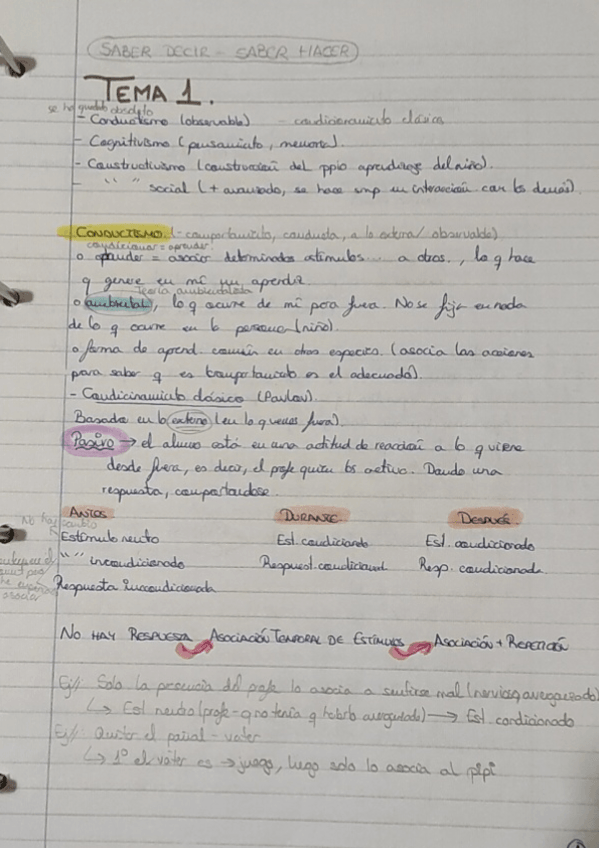 SABER DECIR - SABER HACER
TEMA 1.
se ha quedado obsoleto
- Conductismo (observable) - condicionamiento clásico
- Cognitivismo (pensamiento, memoria).
- Constructivismo (construcción del ppio aprendizaje del niño).
- " " social (+ avanzado, se hace smp en interacción con ls demás).
CONDUCTISMO (- comportamiento, conducta, a lo externo/ observable)
condicionar = aprender.
o aprender = asociar determinados estímulos... a otros., lo q hace
q genere en mí un aprendiz.
Teoría ambientalista
o ambiental, lo q ocurre de mí para fuera. No se fija en nada
de lo q ocurre en la persona (niño).
o forma de aprend. común en otras especies. (asocia las acciones
para saber q es comportamiento es el adecuado).
- Condicinamiento clásico (Pavlov)
Basada en lo externo (en lo que ves fuera).
Pasivo → el alumno está en una actitud de reacción a lo q viene
desde fuera, es decir, el profe quien ls activo. Dando una
respuesta, comportandose.
ANTES DURANTE DESPUÉS
No hay cambio
Estímulo neutro Est. condicionado Est. condicionado
" " incondicionado Respuest. condicionad Resp. condicionada
Respuesta incondicionada
asociar
NO HAY RESPUESTA ASOCIACIÓN TEMPORAL DE ESTÍMULOS ASOCIACIÓN + REPETICIÓN
Ej/: Solo la presencia del profe lo asocia a sentirse mal (nervioso, avergonzado)
↳ Est neutro (profe - q no tenía q haberlo avergonzado) → Est. condicionado
Ej/: Quitar el pañal - vater
↳ 1º el váter es → juego, luego solo lo asocia al pipi